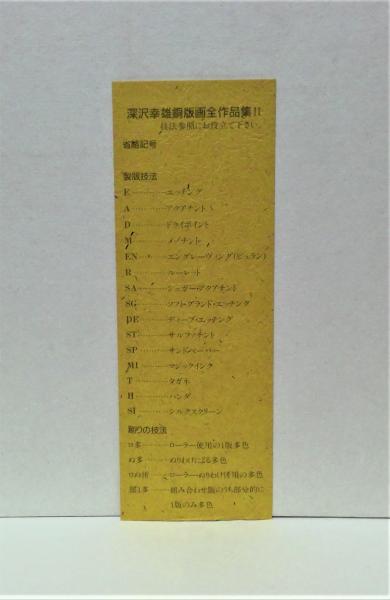 深沢幸雄銅版画全作品集II
技法参照にお役立て下さい。
省略記号
製版技法
E…………エッチング
A…………アクアチント
D…………ドライポイント
M…………メゾチント
EN………エングレーヴィング(ビュラン)
R…………ルーレット
SA………シュガー・アクアチント
SG………ソフトグランド・エッチング
DE………ディープ・エッチング
ST………サルファチント
SP………サンドペーパー
MI………マジックインク
T…………タガネ
H…………ハンダ
SI………シルクスクリーン
刷りの技法
ロ多………ローラー使用の1版多色
ぬ多………ぬりわけによる多色
ロぬ併……ローラー・ぬりわけ併用の多色
部1多……組み合わせ版のうち部分的に
1版のみ多色